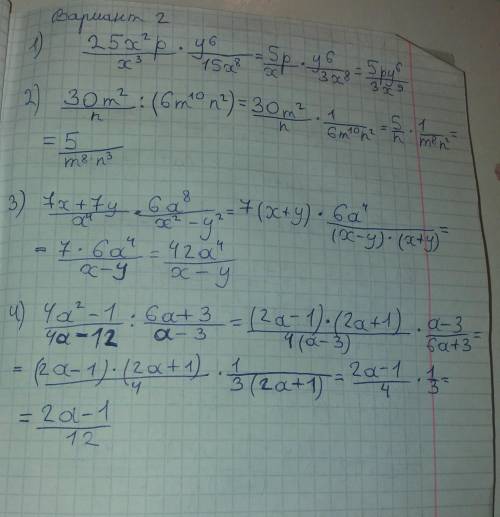 Вариант 2
1) 25x²p/x³ · y⁶/15x⁸ = 5p/x · y⁶/3x⁸ = 5py⁶/3x⁹
2) 30m²/n : (6m¹⁰n²) = 30m²/n · 1/6m¹⁰n² = 5/n · 1/m⁸n² =
= 5/m⁸·n³
3) 7x+7y/a⁴ · 6a⁸/x²-y² = 7(x+y) · 6a⁴/(x-y)·(x+y) =
= 7·6a⁴/x-y = 42a⁴/x-y
4) 4a²-1/4a-12 : 6a+3/a-3 = (2a-1)·(2a+1)/4(a-3) · a-3/6a+3 =
= (2a-1)·(2a+1)/4 · 1/3(2a+1) = 2a-1/4 · 1/3 =
= 2a-1/12